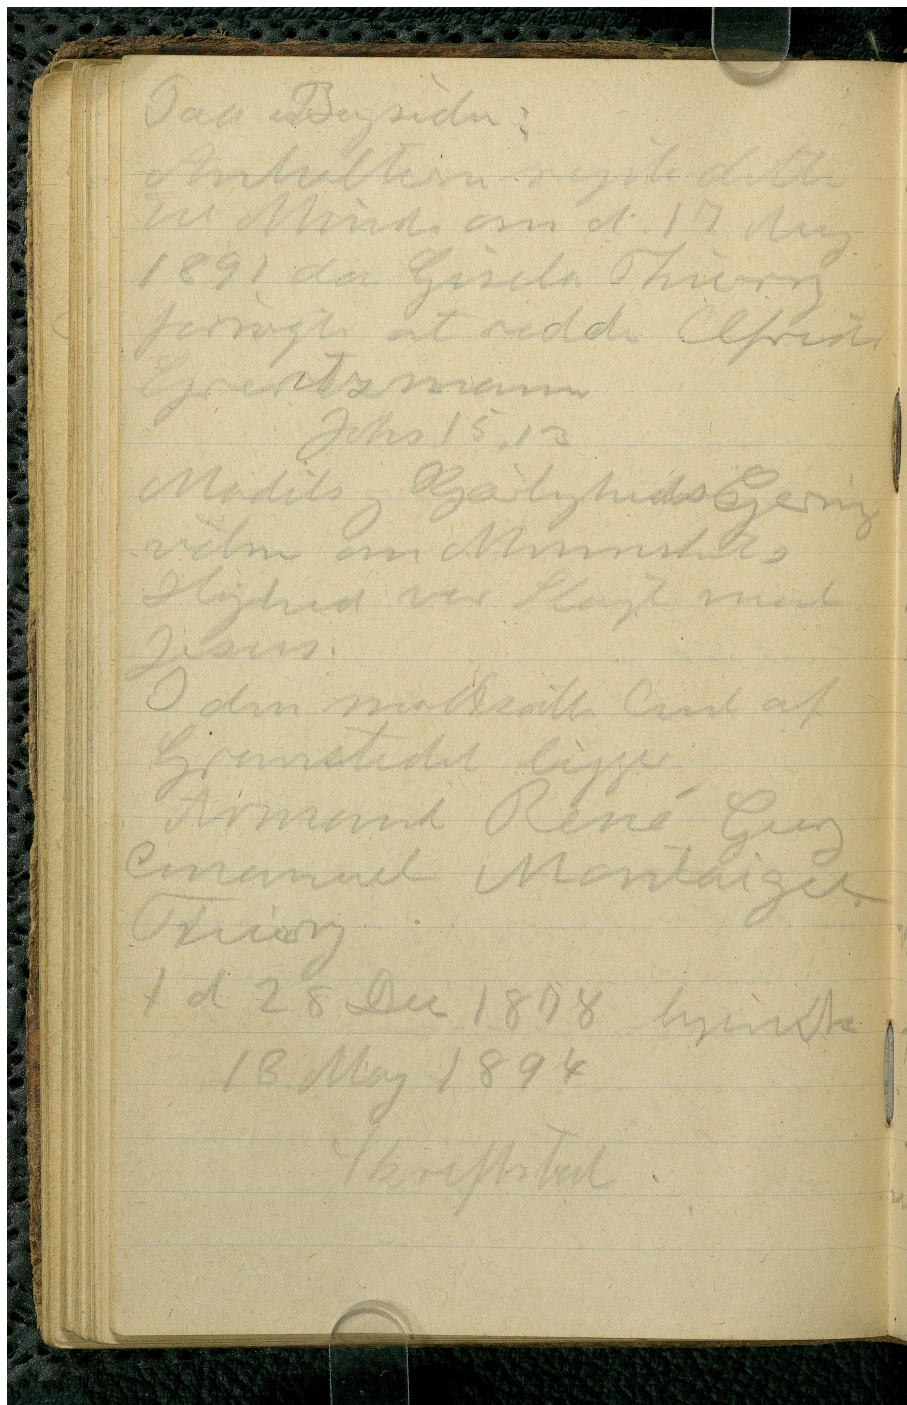 Paa Bagsiden:
Anholterne rejste dette
til Minde om d. 17 Aug
1891 da Gisela Thierry
forsøgte at redde Alfred
Johs 15.13
Modets og Kjærligheds Gjerning
vidne om Menneskets
Højhed vor Slægt med
Jesus.
I den modsatte Ende af
Gravstedet ligger
Armand René Georg
Emanuel Montaigu
Thierry
† d 28 Dec 1878
18 May 1894
Skriftsted